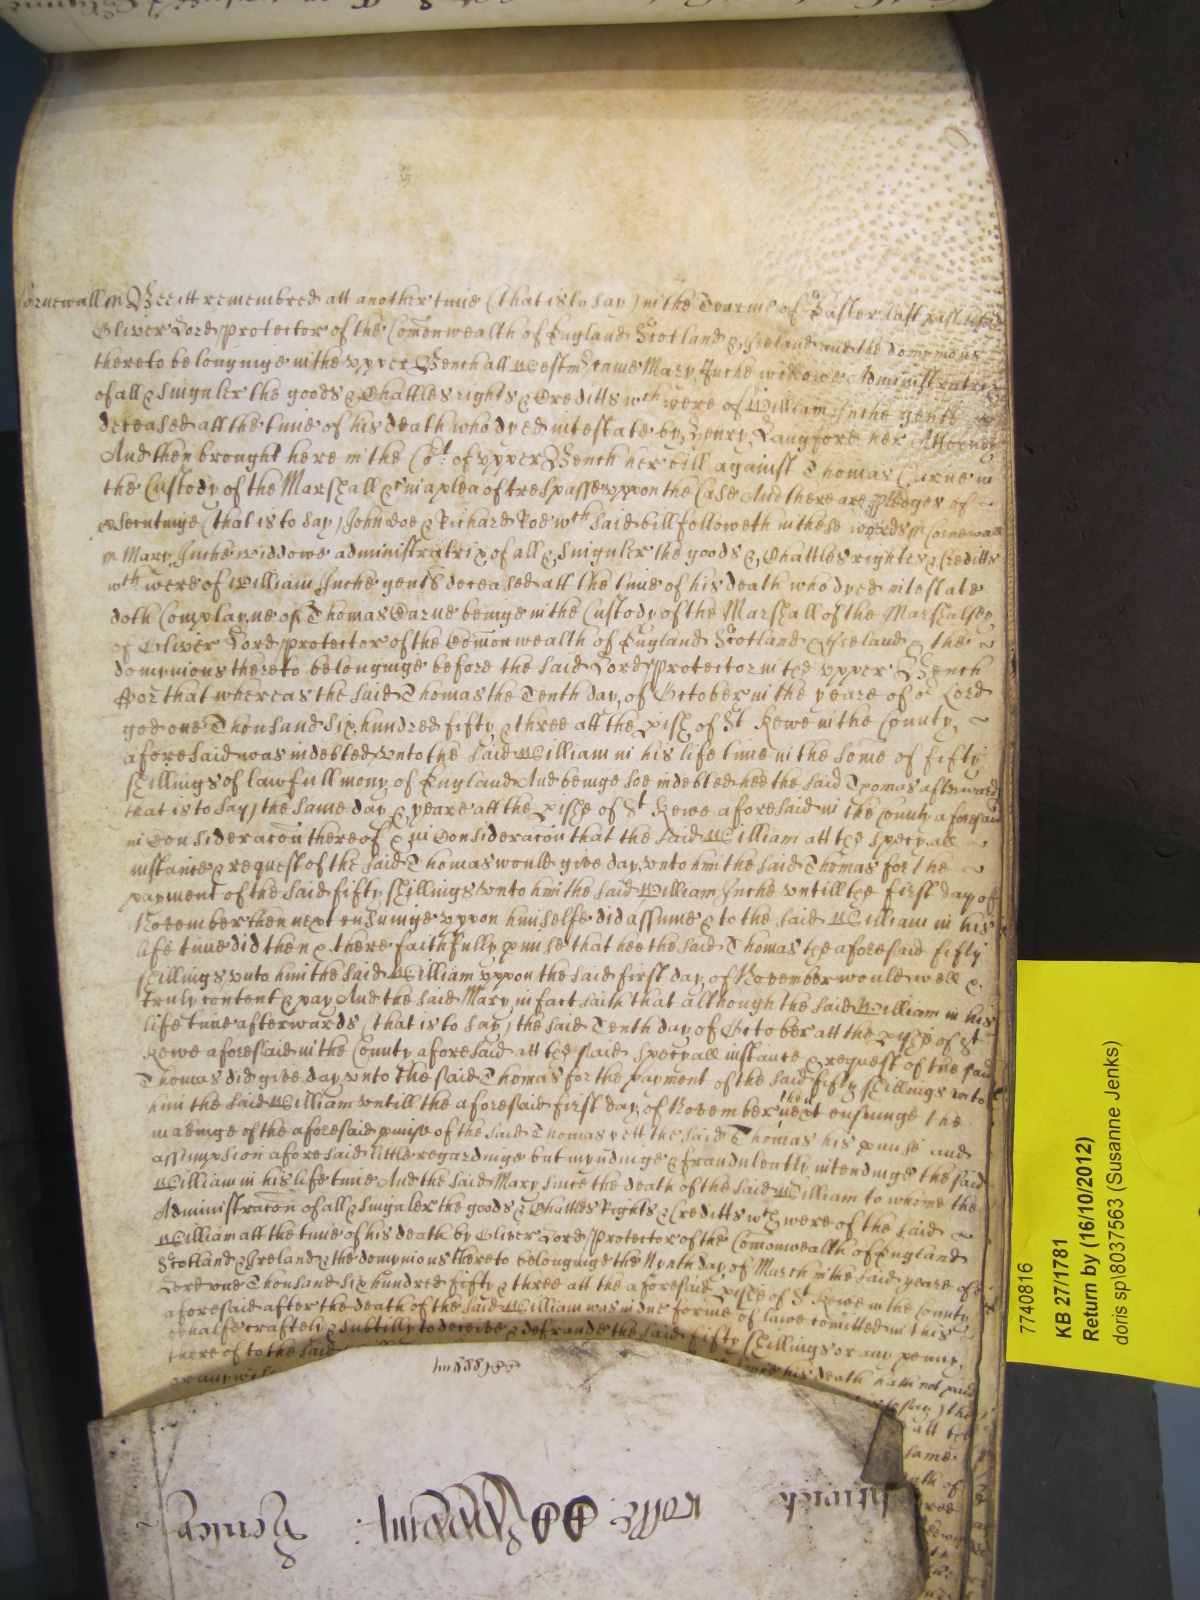 Cornewall ss Bee itt remembred att another time (that is to say) in the Tearme of Easter last past before
Oliver Lord Protector of the Comonwealth of England Scotland & Ireland and the dominions
thereto belonginge in the upper Bench att Westmr came Mary Inche widdowe Administratrix
of all & singuler the goods & Chattles rights & Creditts wch were of William Inche gent
deceased att the time of his death who dyed intestate by Henry Langford her Attorney
And then brought here in the Cort of upper Bench her bill against Thomas Carne in
the Custody of the Marshall &c in a plea of trespasse uppon the Case And there are pledges of
prsecutinge (that is to say) John Doe & Richard Roe wch said bill followeth in these words ss Cornewall
ss Mary Inche widdowe administratrix of all & singuler the goods & Chattles rights & Creditts
wch were of William Inche gent deceased att the time of his death who dyed intestate
doth Complayne of Thomas Carne beinge in the Custody of the Marshall of the Marshalsey
of Oliver Lord protector of the Comonwealth of England Scotland & Ireland & the
dominions thereto belonginge before the said Lord Protector in the upper Bench
ffor that whereas the said Thomas the Tenth day of October in the yeare of or Lord
god one Thousand Six hundred fifty & three att the pish of St Kewe in the County
aforesaid was indebted unto the said William in his life time in the some of fifty
shillings of lawfull mony of England And beinge soe indebted hee the said Thomas afterward
that is to say) the same day & yeare att the pishe of St Kewe aforesaid in the County aforesaid
in Consideracon thereof & in Consideracon that the said William att the specyall
instance & request of the said Thomas would give day unto him the said Thomas for the
payment of the said fifty shillings unto him the said William Inche untill the first day of
November then next ensuinge uppon himselfe did assume & to the said William in his
life time did then & there faithfully pmise that hee the said Thomas the aforesaid fifty
shillings unto him the said William uppon the said first day of November would well &
truly content & pay And the said Mary in fact saith that although the said William in his
life time afterwards (that is to say) the said Tenth day of October att the pishe of St
Kewe aforesaid in the County aforesaid att the said specyall instance & request of the said
Thomas did give day unto the said Thomas for the payment of the said fifty shillings unto
him the said William untill the aforesaid first day of November then next ensuinge the
makinge of the aforesaid pmise of the said Thomas yett the said Thomas his pmise and
assumpsion aforesaid little regardinge but myndinge & fraudulently intendinge the said
William in his life time And the said Mary since the death of the said William to whome the
Administracon of all & singuler the goods & Chattles Rights & Creditts wch were of the said
William att the time of his death by Oliver Lord Protector of the Comonwealth of England
Scotland & Ireland & the dominions thereto belonginge the Nynth day of March in the said yeare of
Lord one Thousand Six hundred fifty & three att the aforesaid pishe of St Kewe in the County
aforesaid after the death of the said William was in due forme of lawe comitted in this
behalfe craftely & subtilly to deceive & defraude the said fifty shillings or any penny
thereof to the said
or any
his death hath not paid
the
att the
same
7740816
KB 27/1781
Return by (16/10/2012)
doris sp\8037563 (Susanne Jenks)
rolle
Henley